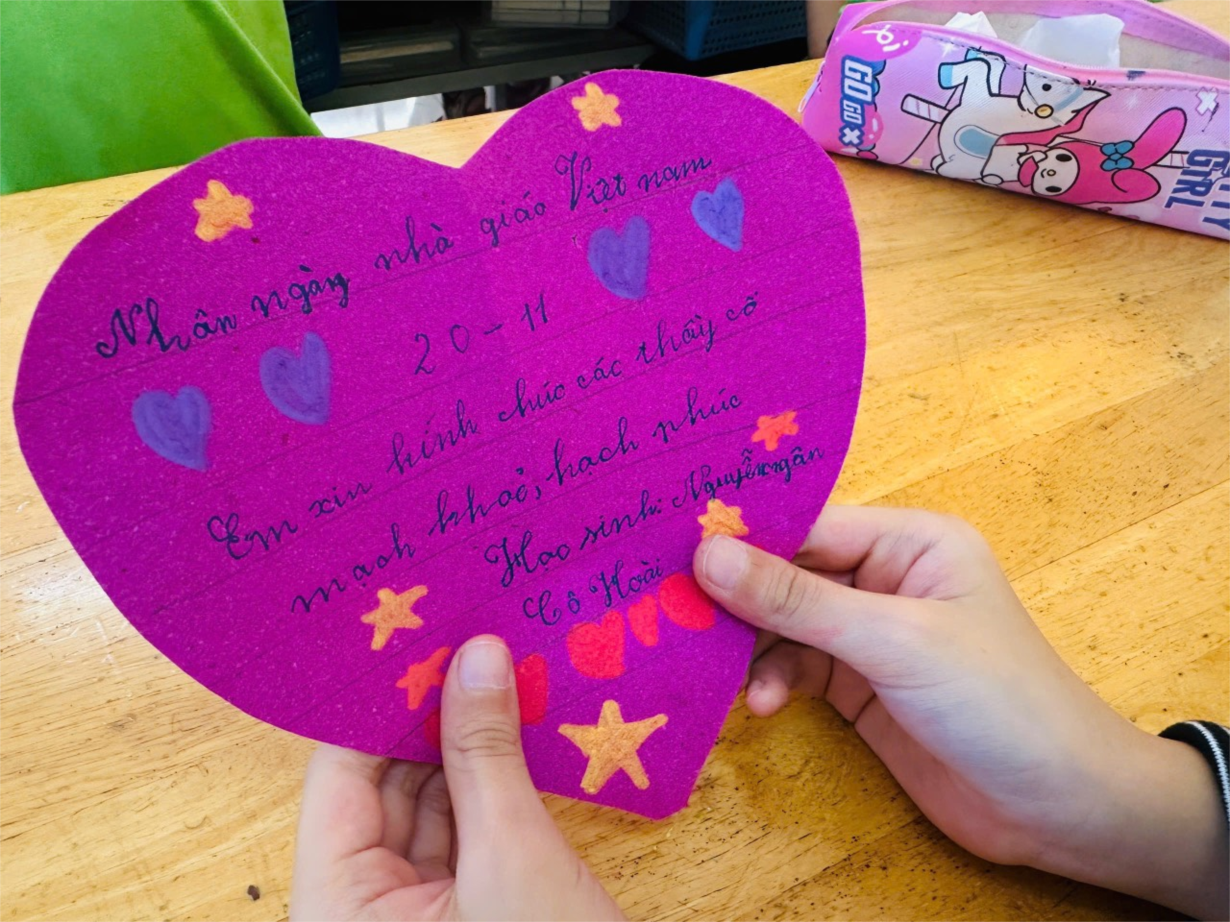 Nhân ngày nhà giáo Việt nam
20 - 11
Em xin kính chúc các thầy cô
mạch khoẻ, hạch phúc
Học sinh: Nguyễn ngân
Cô Hoài
GO
GO
GIRL